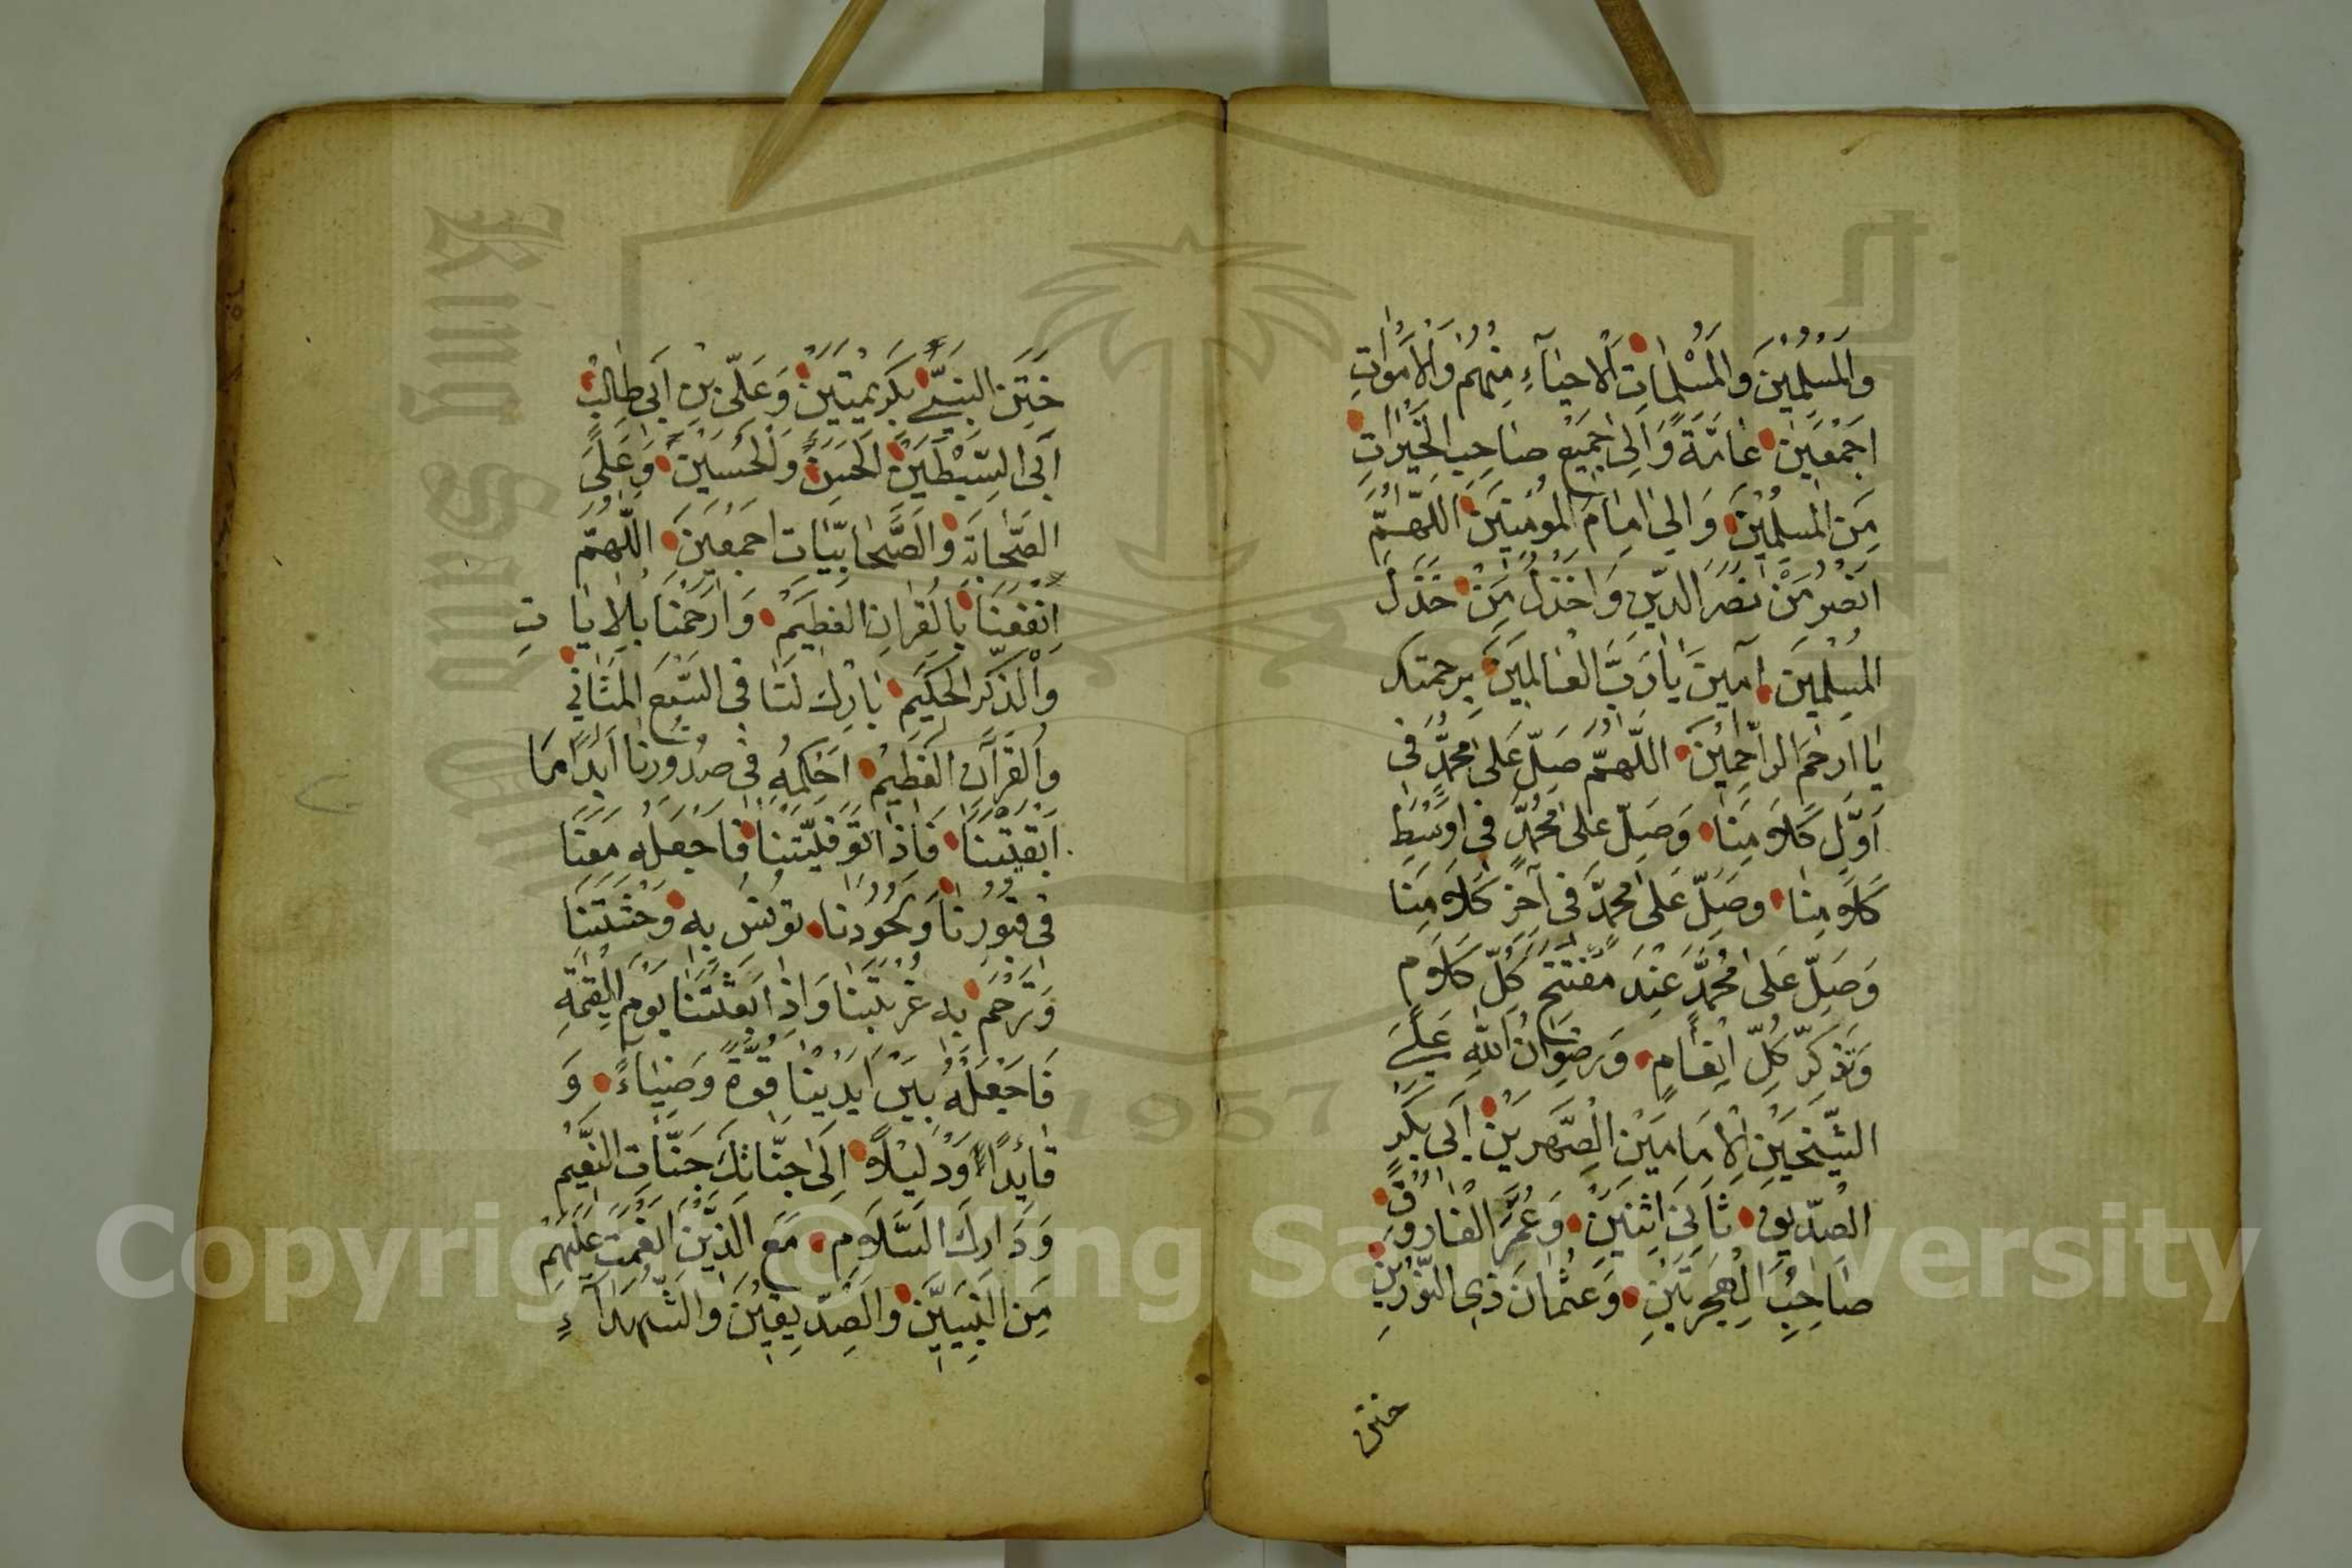 وَالْمُسْلِمِيْنَ وَالْمُسْلِمَاتِ اَلْاَحْيَآءِ مِنْهُمْ وَالْاَمْوَاتِ
اَجْمَعِيْنَ عَامَّةً وَاِلٰى جَمِيْعِ صَاحِبِ الْخَيْرَاتِ
مِنَ الْمُسْلِمِيْنَ وَاِلٰى اِمَامِ الْمُؤْمِنِيْنَ اَللّٰهُمَّ
انْصُرْ مَنْ نَصَرَ الدِّيْنَ وَاخْذُلْ مَنْ خَذَلَ
الْمُسْلِمِيْنَ اٰمِيْنَ يَا رَبَّ الْعَالَمِيْنَ بِرَحْمَتِكَ
يَا اَرْحَمَ الرَّاحِمِيْنَ اَللّٰهُمَّ صَلِّ عَلٰى مُحَمَّدٍ فِى
اَوَّلِ كَلَامِنَا وَصَلِّ عَلٰى مُحَمَّدٍ فِى اَوْسَطِ
كَلَامِنَا وَصَلِّ عَلٰى مُحَمَّدٍ فِى اٰخِرِ كَلَامِنَا
وَصَلِّ عَلٰى مُحَمَّدٍ عِنْدَ مُفْتَتَحِ كُلِّ كَلَامٍ
وَتَذَكُّرِ كُلِّ اِنْعَامٍ وَرِضْوَانُ اللّٰهِ عَلٰى
الشَّيْخَيْنِ الْاِمَامَيْنِ الصِّهْرَيْنِ اَبِى بَكْرٍ
الصِّدِّيْقِ ثَانِىَ اثْنَيْنِ وَعُمَرَ الْفَارُوْقِ
صَاحِبِ الْهِجْرَتَيْنِ وَعُثْمَانَ ذِى النُّوْرَيْنِ
ختن
خَتَنِ النَّبِىِّ بِكَرِيْمَتَيْنِ وَعَلِىِّ بْنِ اَبِى طَالِبٍ
اَبِى السِّبْطَيْنِ الْحَسَنِ وَالْحُسَيْنِ وَعَلَى
الصَّحَابَةِ وَالصَّحَابِيَّاتِ اَجْمَعِيْنَ اَللّٰهُمَّ
انْفَعْنَا بِالْقُرْاٰنِ الْعَظِيْمِ وَارْحَمْنَا بِالْاٰيَاتِ
وَالذِّكْرِ الْحَكِيْمِ بَارِكْ لَنَا فِى السَّبْعِ الْمَثَانِى
وَالْقُرْآنِ الْعَظِيْمِ اَحْكِمْهُ فِى صُدُوْرِنَا اَبَدًا مَا
اَبْقَيْتَنَا فَاِذَا تَوَفَّيْتَنَا فَاجْعَلْهُ مَعَنَا
فِى قُبُوْرِنَا وَلُحُوْدِنَا تُوْنِسُ بِهٖ وَحْشَتَنَا
وَتَرْحَمُ بِهٖ غُرْبَتَنَا وَاِذَا بَعَثْتَنَا يَوْمَ الْقِيٰمَةِ
فَاجْعَلْهُ بَيْنَ اَيْدِيْنَا قُوَّةً وَضِيَاءً وَ
قَايِدًا وَدَلِيْلًا اِلٰى جَنَّاتِكَ جَنَّاتِ النَّعِيْمِ
وَدَارِكَ السَّلَامِ مَعَ الَّذِيْنَ اَنْعَمْتَ عَلَيْهِمْ
مِنَ النَّبِيِّيْنَ وَالصِّدِّيْقِيْنَ وَالشُّهَدَآءِ
King Saud University
1957
Copyright © King Saud University